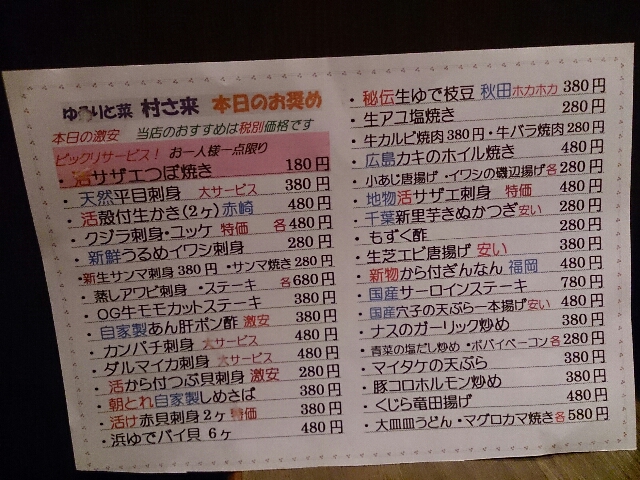 ゆるりと菜 村さ来 本日のお奨め
本日の激安 当店のおすすめは税別価格です
ビックリサービス! お一人様一点限り
・活サザエつぼ焼き 180円
・天然平目刺身 大サービス 380円
・活殻付生かき(2ヶ)赤崎 480円
・クジラ刺身・ユッケ 特価 各480円
・新鮮うるめイワシ刺身 280円
・新生サンマ刺身380円・サンマ焼き280円
・蒸しアワビ刺身・ステーキ 各680円
・OG牛モモカットステーキ 380円
・自家製あん肝ポン酢 激安 380円
・カンパチ刺身 大サービス 480円
・ダルマイカ刺身 大サービス 480円
・活から付つぶ貝刺身 激安 280円
・朝とれ自家製しめさば 380円
・活け赤貝刺身2ヶ 特価 380円
・浜ゆでバイ貝 6ヶ 480円
・秘伝生ゆで枝豆 秋田ホカホカ 380円
・生アユ塩焼き 280円
・牛カルビ焼肉380円・牛バラ焼肉280円
・広島カキのホイル焼き 480円
・小あじ唐揚げ・イワシの磯辺揚げ各280円
・地物活サザエ刺身 特価 480円
・千葉新里芋きぬかつぎ安い 280円
・もずく酢 280円
・生芝エビ唐揚げ 安い 380円
・新物から付ぎんなん 福岡 480円
・国産サーロインステーキ 780円
・国産穴子の天ぷら一本揚げ安い 480円
・ナスのガーリック炒め 380円
・青菜の塩だし炒め・ポパイベーコン各280円
・マイタケの天ぷら 380円
・豚コロホルモン炒め 380円
・くじら竜田揚げ 480円
・大皿皿うどん・マグロカマ焼き各580円